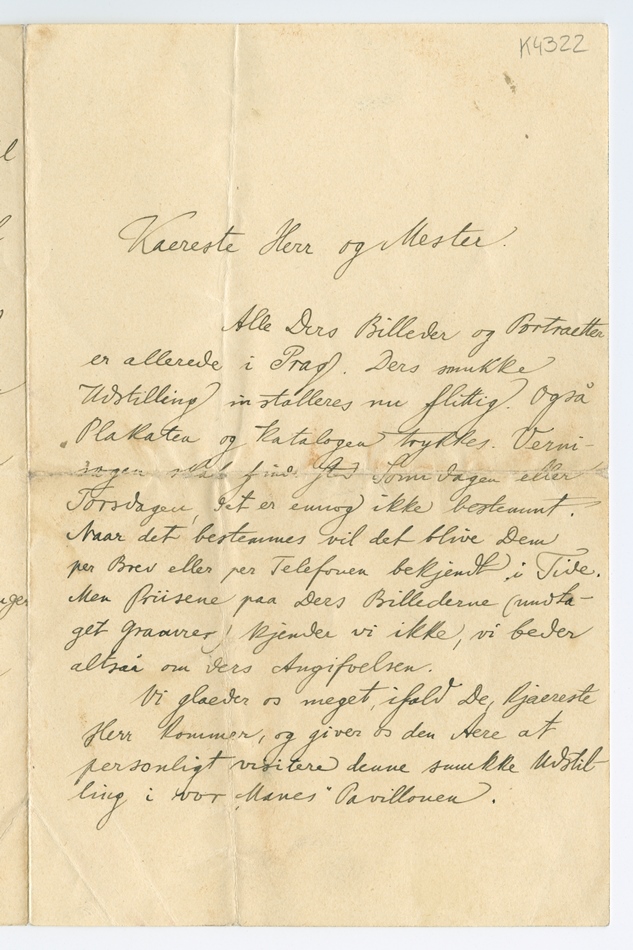 K4322
Kaereste Herr og Mester.
Alle Ders Billeder og Portraetter
er allerede i Prag. Ders smukke
Udstilling installeres nu flittig. Også
Plakaten og Katalogen trykkes. Verni-
sagen skal finde sted eller
Torsdagen, det er ennog ikke bestemmt.
Naar det bestemmes vil det blive Dem
per Brev eller per Telefonen bekjendt i Tide.
Men Priisene paa Ders Billederne (undta-
get Graavrer) kjender vi ikke, vi beder
altsaa om Ders Angifvelsen.
Vi glaeder os meget, ifald De, kjaereste
Herr kommer, og giver os den Aere at
personligt visitere denne smukke Udstil-
ling i vor „Manes" Pavillonen.